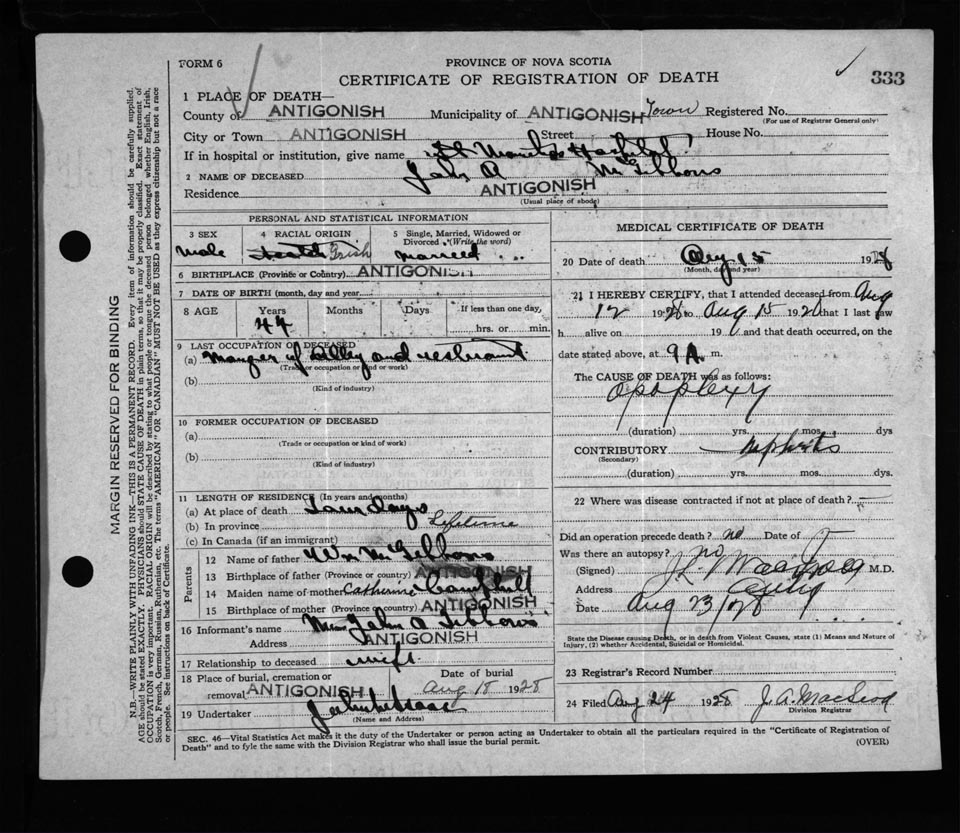 FORM 6
PROVINCE OF NOVA SCOTIA
CERTIFICATE OF REGISTRATION OF DEATH
333
1 PLACE OF DEATH—
County of ANTIGONISH Municipality of ANTIGONISH Town Registered No.
(For use of Registrar General only)
City or Town ANTIGONISH Street House No.
If in hospital or institution, give name St Hospital
2 NAME OF DECEASED John A McGibbons
Residence ANTIGONISH
(Usual place of abode)
PERSONAL AND STATISTICAL INFORMATION
3 SEX 4 RACIAL ORIGIN 5 Single, Married, Widowed or Divorced (Write the word)
Male Scotch Irish Married
6 BIRTHPLACE (Province or Country) ANTIGONISH
7 DATE OF BIRTH (month, day and year)
8 AGE Years Months Days If less than one day,
44 hrs. or min.
9 LAST OCCUPATION OF DECEASED
(a) Manger of and
(Trade or occupation or kind of work)
(b)
(Kind of industry)
10 FORMER OCCUPATION OF DECEASED
(a)
(Trade or occupation or kind of work)
(b)
(Kind of industry)
11 LENGTH OF RESIDENCE (In years and months)
(a) At place of death days
(b) In province Lifetime
(c) In Canada (if an immigrant)
Parents
12 Name of father Wm McGibbons
13 Birthplace of father (Province or country) ANTIGONISH
14 Maiden name of mother Catherine Campbell
15 Birthplace of mother (Province or country) ANTIGONISH
16 Informant's name John A Gibbons
Address ANTIGONISH
17 Relationship to deceased wife
18 Place of burial, cremation or removal ANTIGONISH Date of burial Aug 18 1928
19 Undertaker
(Name and Address)
MEDICAL CERTIFICATE OF DEATH
20 Date of death Aug 15 1928
(Month, day and year)
21 I HEREBY CERTIFY, that I attended deceased from Aug
12 1928 to Aug 15 1928 that I last saw
h alive on 19 and that death occurred, on the
date stated above, at 9 A. m.
The CAUSE OF DEATH was as follows:
apoplexy
(duration) yrs. mos. dys
CONTRIBUTORY nephritis
(Secondary)
(duration) yrs. mos. dys.
22 Where was disease contracted if not at place of death?
Did an operation precede death? no Date of
Was there an autopsy? no
(Signed) M.D.
Address Antig
Date Aug 23/28
State the Disease causing Death, or in death from Violent Causes, state (1) Means and Nature of
Injury, (2) whether Accidental, Suicidal or Homicidal.
23 Registrar's Record Number
24 Filed Aug 24 1928 J. A. MacLeod
Division Registrar
SEC. 46—Vital Statistics Act makes it the duty of the Undertaker or person acting as Undertaker to obtain all the particulars required in the "Certificate of Registration of
Death" and to fyle the same with the Division Registrar who shall issue the burial permit.
(OVER)
MARGIN RESERVED FOR BINDING
N.B.—WRITE PLAINLY WITH UNFADING INK—THIS IS A PERMANENT RECORD. Every item of information should be carefully supplied.
AGE should be stated EXACTLY. PHYSICIANS should STATE CAUSE OF DEATH in plain terms, so that it may be properly classified. Exact statement of
OCCUPATION is very important. RACIAL ORIGIN will be described by stating to what people or tongue the deceased person belonged whether English, Irish,
Scotch, French, German, Russian, Ruthenian, etc. The terms "AMERICAN" OR "CANADIAN" MUST NOT BE USED as they express citizenship but not a race
or people. See instructions on back of Certificate.